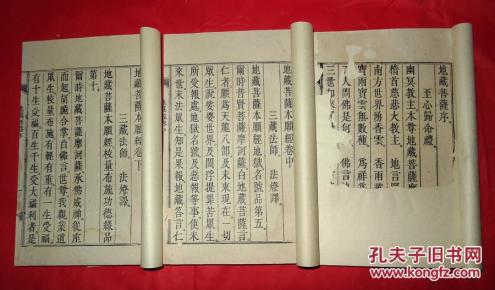 地藏菩薩序
至心歸命禮
幽冥教主本尊地藏菩薩
稽首慈悲大教主 地言堅
南方世界湧香雲 香雨花
寶雨寶雲無數種 為祥
天人問佛是何 佛言地
三世如來
地藏菩薩本願經卷中
三藏法師 法燈譯
地藏菩薩本願經地獄名號品第五
爾時普賢菩薩摩訶薩白地藏菩薩言
仁者願為天龍八部及未來現在一切
眾生說娑婆世界及閻浮提罪苦眾生
所受報處地獄名號及惡報等事使未
來世末法眾生知是果報地藏答言仁
地藏菩薩本願經卷下
三藏法師 法燈譯
地藏菩薩本願經校量布施功德緣品
第十
爾時地藏菩薩摩訶薩承佛威神從座
而起胡跪合掌白佛言世尊我觀業道
眾生校量布施有輕有重有一生受福
有十生受福百生千生受大福利者是
孔夫子旧书网
www.kongfz.com